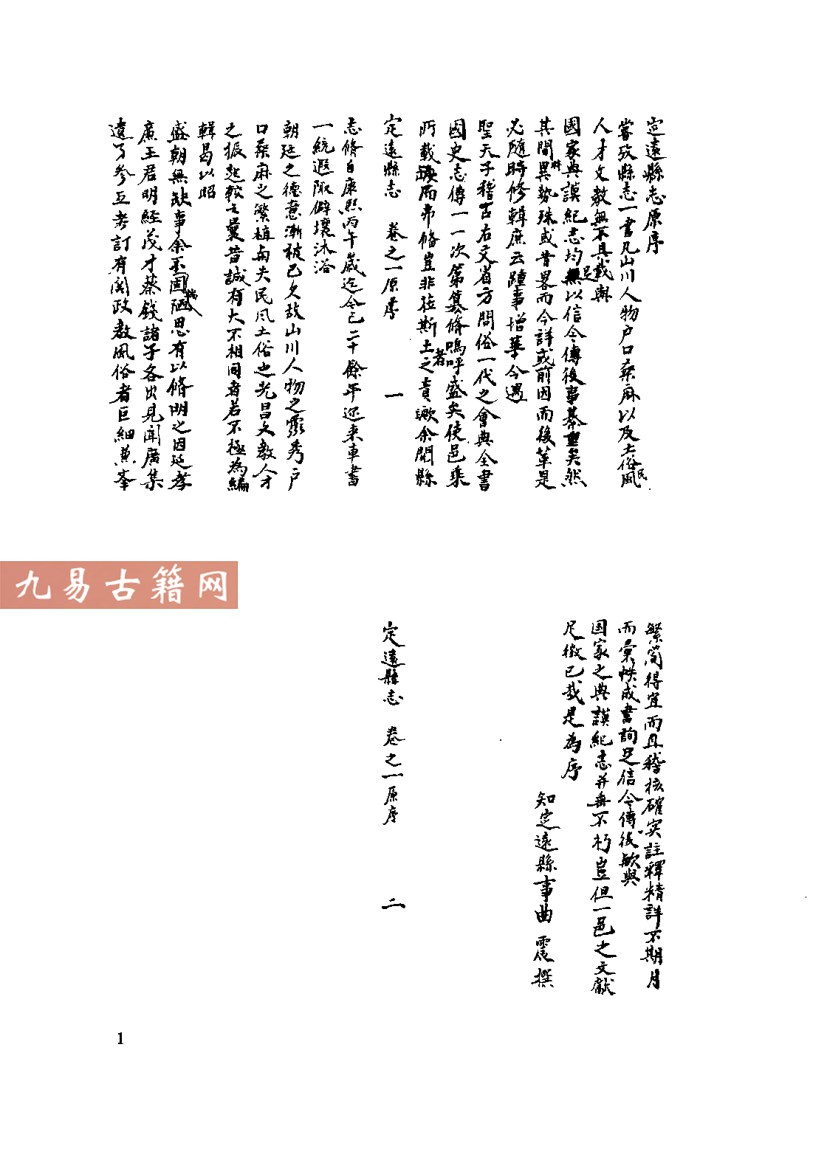 定遠縣志原序
嘗攷縣志一書凡山川人物户口桑麻以及土俗民風
人才文教無不具載與
國家典謨紀志均足以信今傳後事綦重矣然
其間時異勢殊或昔畧而今詳或前因而後革是
必隨時修輯庶云踵事增華今遇
聖天子稽古右文省方問俗一代之會典全書
國史志傳一一次第纂修嗚呼盛矣使邑乘
所載缺而弗修豈非莅斯土者之責歟余閱縣
定遠縣志　卷之一原序　一
志修自康熙丙午歲迄今已二十餘年迩来車書
一統遐陬僻壤沐浴
朝廷之德意漸被已久故山川人物之靈秀户
口桑麻之繁植與夫民風土俗之光昌文教人才
之振起較之曩昔誠有大不相同者若不極為編
輯曷以昭
盛朝無缺事余不揣固陋思有以修明之因延孝
廉王君明經茂才蔡錢諸子各出見聞廣集
遺乃參互考訂有関政教風俗者巨細兼
繁简得宜而且稽核確实註釋精詳不期月
而彙帙成書詢足信今傳後歟與
国家之典謨紀志并垂不朽豈但一邑之文献
足徵已哉是為序
知定遠縣事曲震撰
定遠縣志　卷之一原序　二
九易古籍网
1